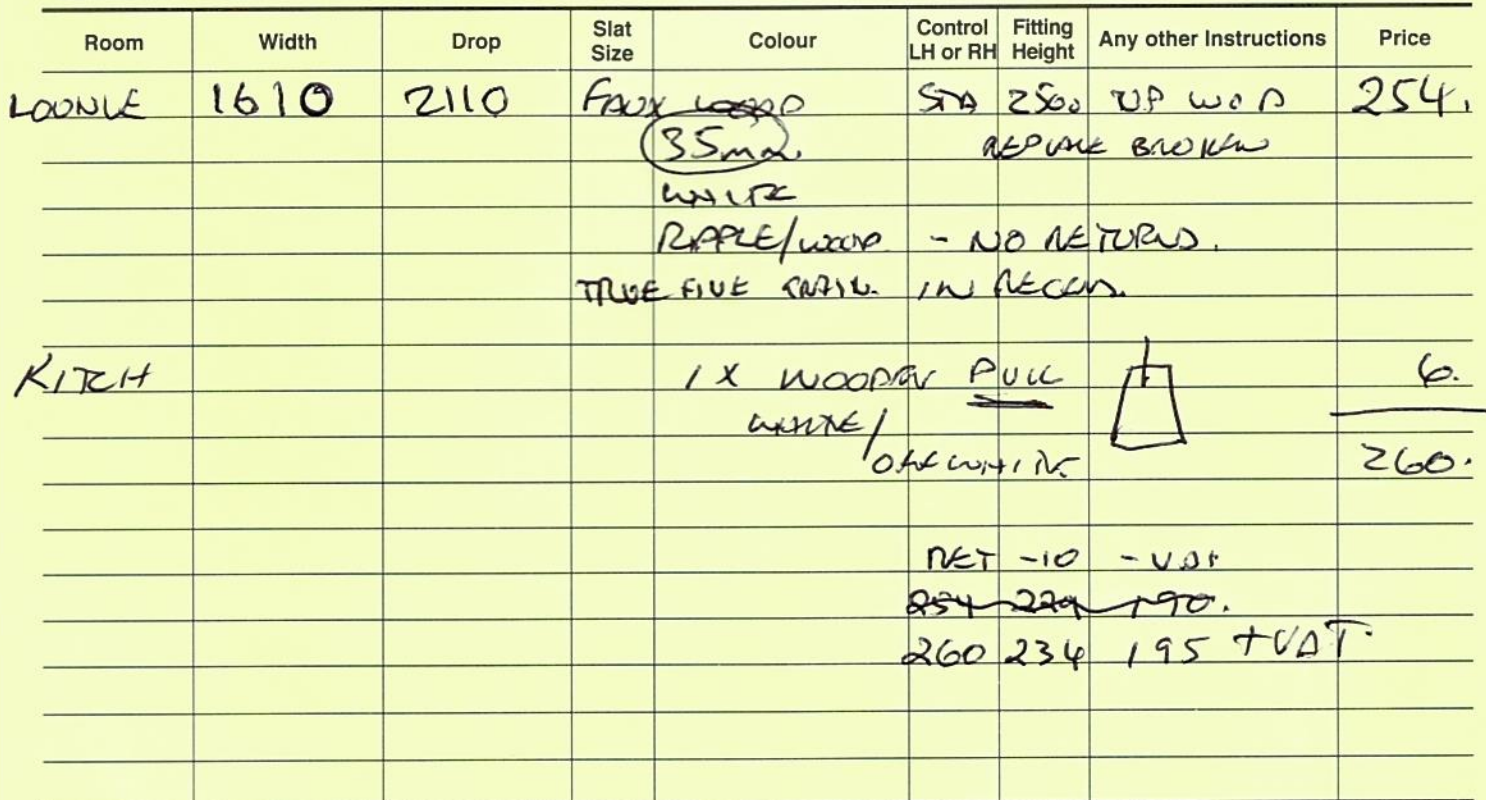 Room Width Drop Slat Size Colour Control LH or RH Fitting Height Any other Instructions Price
LOUNGE 1610 2110 FAUX WOOD STD 2500 UP WOD 254.
35mm. REPLACE BROKEN
WHITE
RIPPLE/WOOD - NO RETURNS.
TRUE FIVE IN RECESS.
KITCH 1 X WOODEN PULL 6.
WHITE/
OFF WHITE 260.
NET -10 -VAT
254 229 190.
260 234 195 +VAT